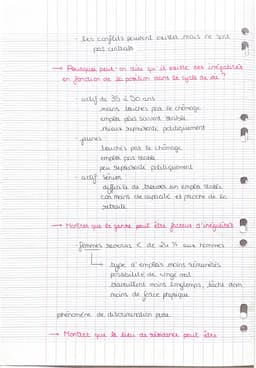 - Les conflits peuvent exister mais ne sont
pas centraux
→ Pourquoi peut-on dire qu'il existe des inégalités
en fonction de la position dans le cycle de vie ?
- actif de 35 à 50 ans
moins touchés par le chômage
emploi plus souvent stable
mieux représenté politiquement
- jeunes
touchés par le chômage
emploi pas stable
peu représenté politiquement
- actif sénior
difficile de trouver un emploi stable
car moins de capacité et proche de la
retraite
→ Montrer que le genre peut être facteur d'inégalités
- femmes revenus < de 24 % aux hommes
type d'emplois moins rémunérés
possibilité de congé mat
travaillent moins longtemps, donc
moins de force physique
phénomène de discrimination pure
→ Montrer que le lieu de résidence peut être